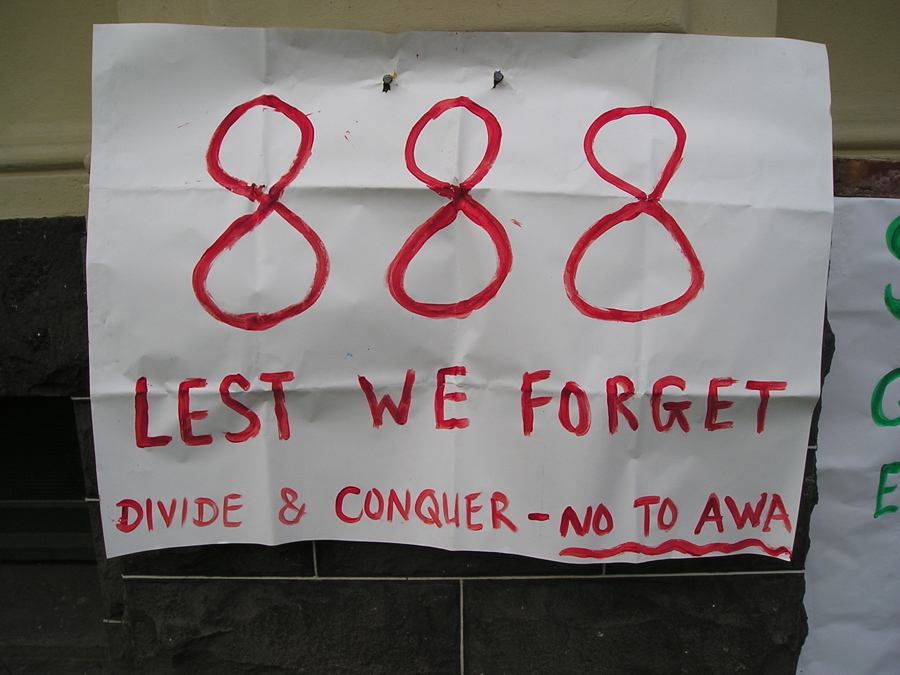 888
LEST WE FORGET
DIVIDE & CONQUER - NO TO AWA
S
G
E